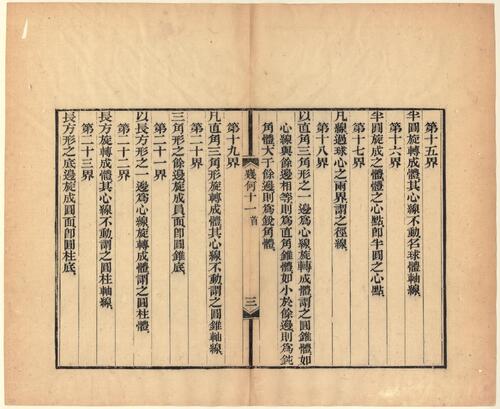 第十五界
半圓旋轉成體其心線不動名球體軸線
第十六界
半圓旋成之體體之心點卽半圓之心點
第十七界
凡線過球心之兩界謂之徑線
第十八界
以直角三角形之一邊爲心線旋轉成體謂之圓錐體如
心線與餘邊相等則爲直角錐體如小於餘邊則爲鈍
角體大于餘邊則爲銳角體
幾何十一首
三
第十九界
凡直角三角形旋轉成體其心線不動謂之圓錐軸線
第二十界
三角形之餘邊旋成員面卽圓錐底
第二十一界
以長方形之一邊爲心線旋轉成體謂之圓柱體
第二十二界
長方旋轉成體其心線不動謂之圓柱軸線
第二十三界
長方形之底邊旋成圓面卽圓柱底